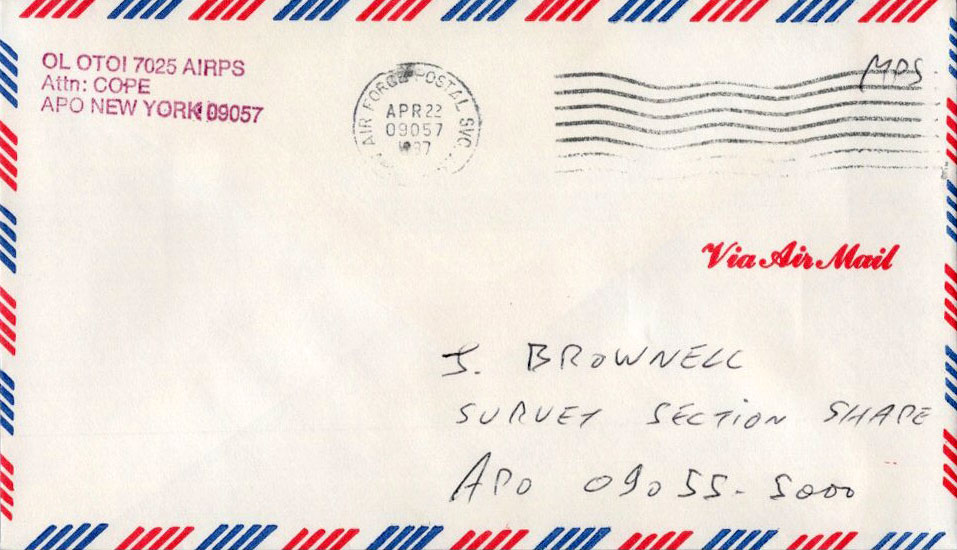 OL OTOI 7025 AIRPS
Attn: COPE
APO NEW YORK 09057
AIR FORCE POSTAL SVC
APR 22
09057
1987
MPS
Via Air Mail
J. BROWNELL
SURVEY SECTION SHAPE
APO 09055-5000